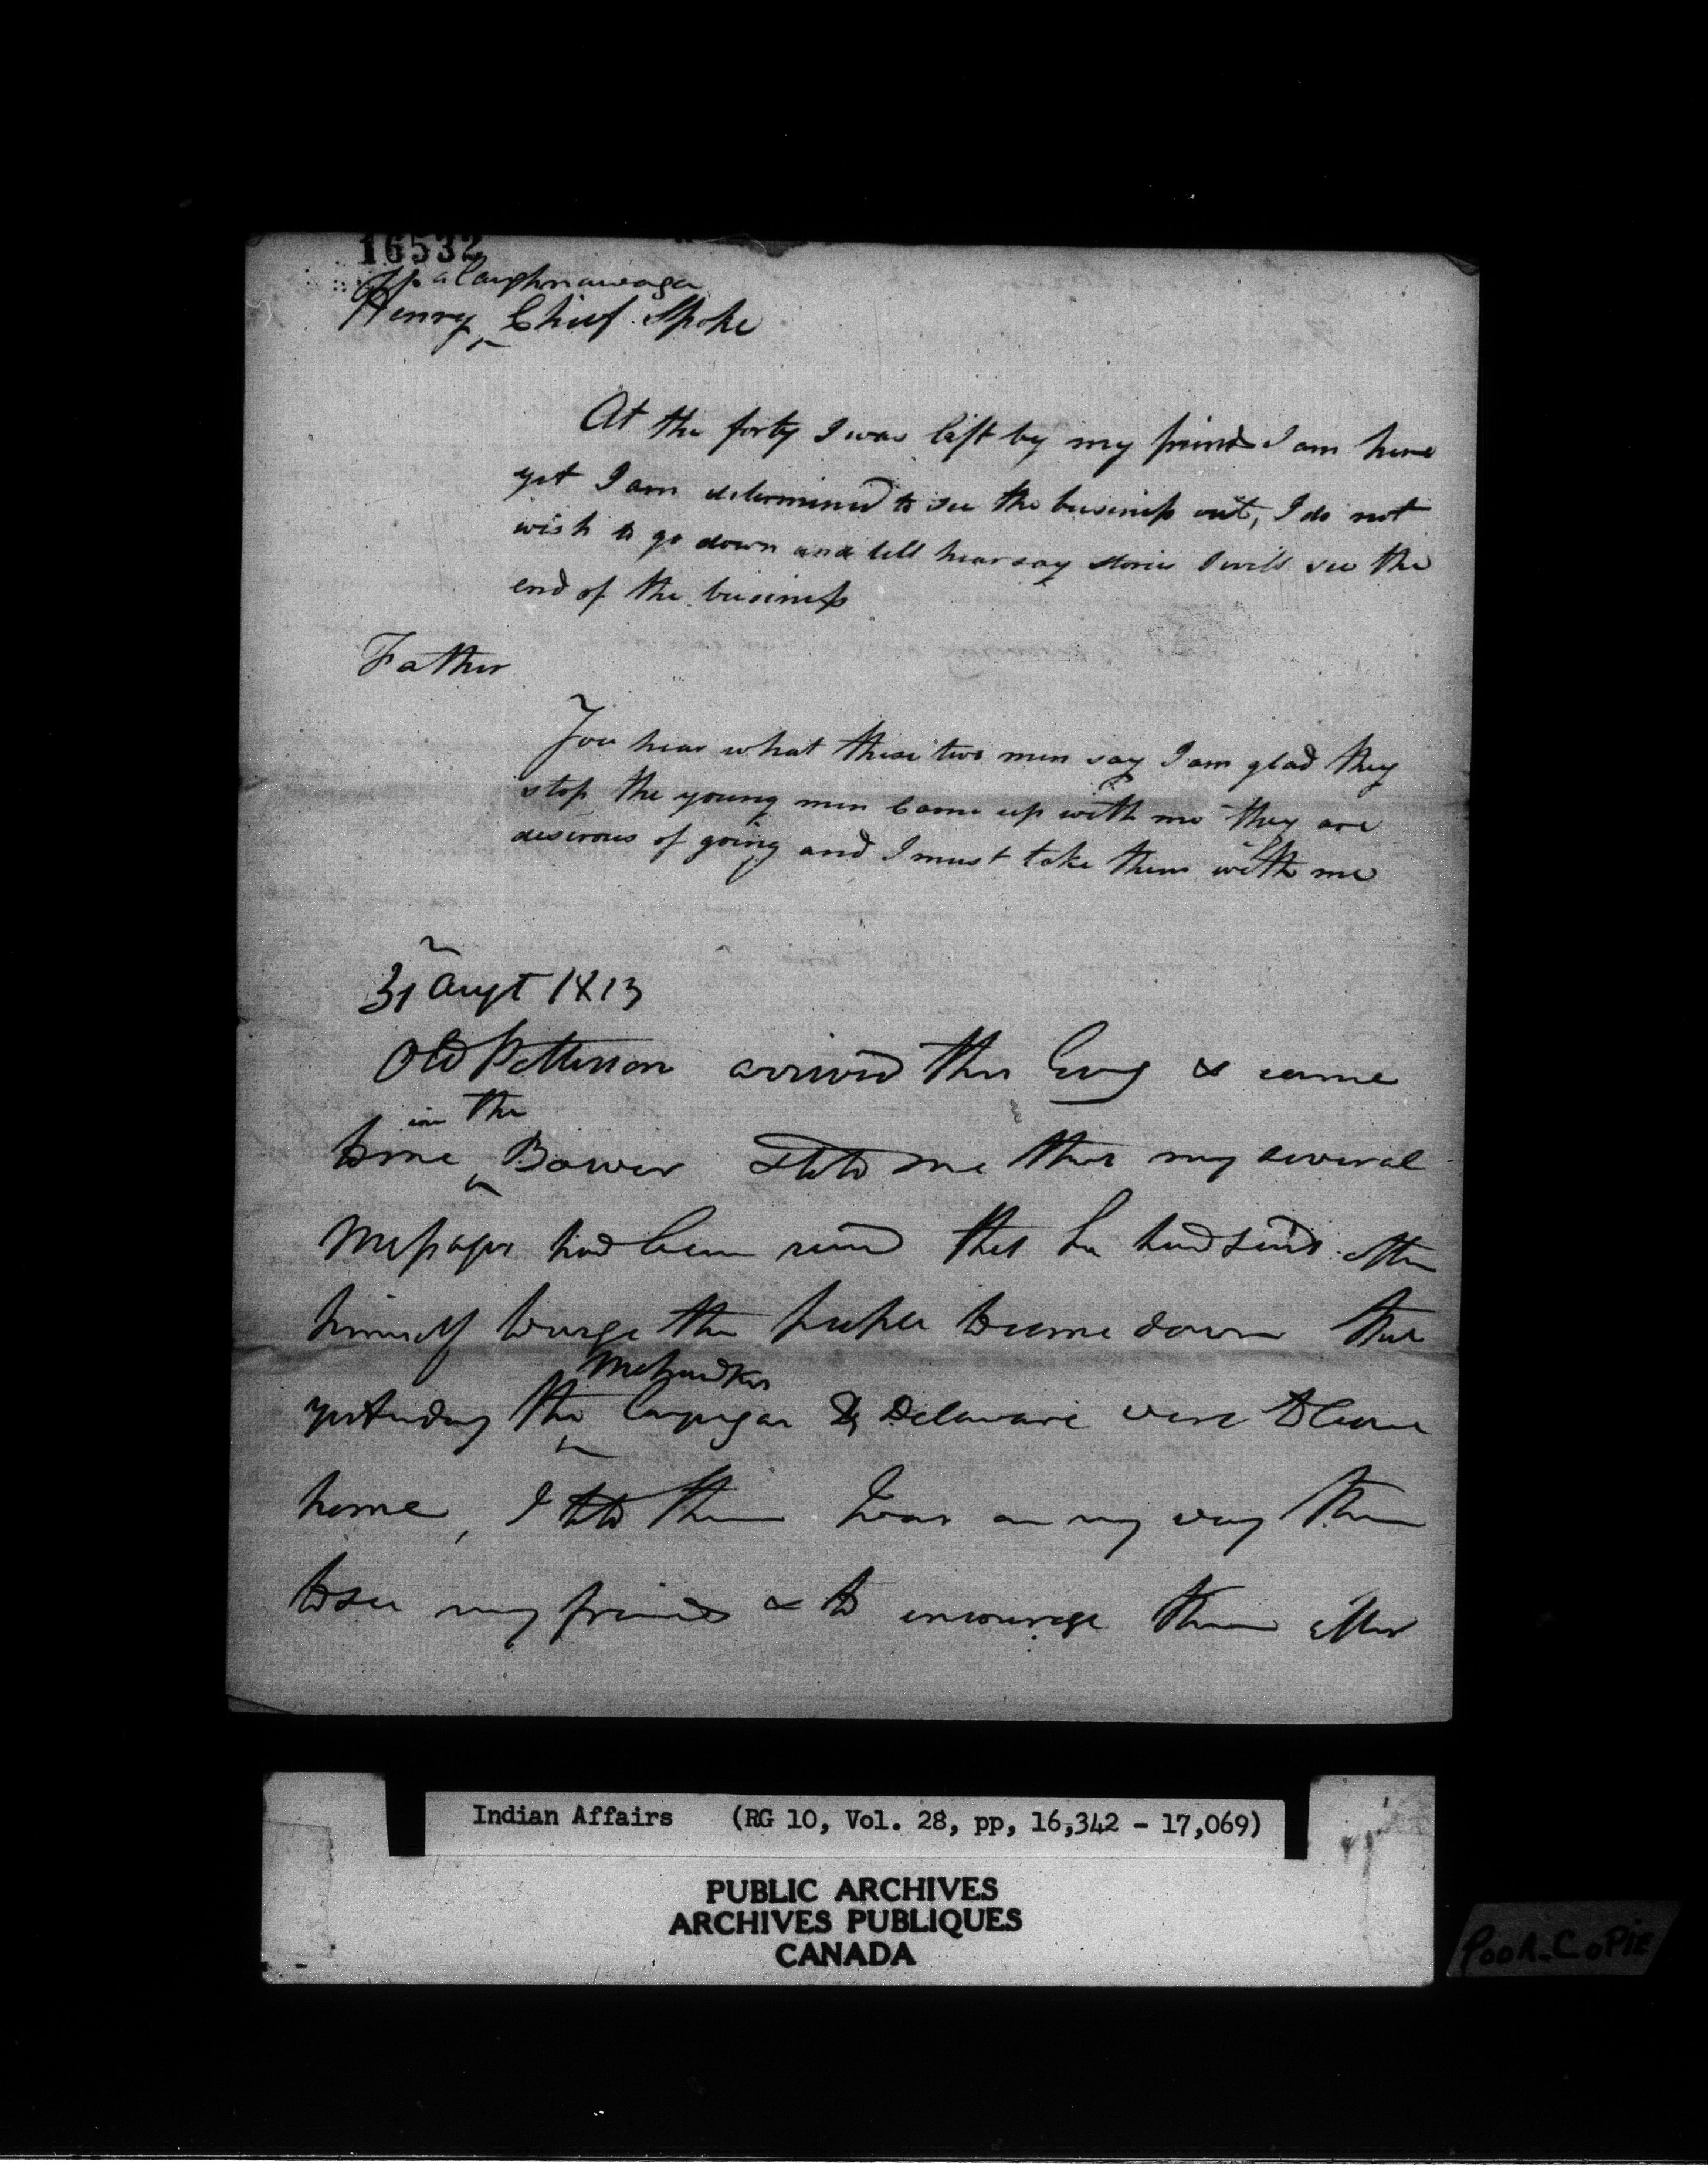 16532
a Caughnawaga
Henry ^ Chief Spoke
At the forty I was left by my friends I am here
yet I am determined to see the business out, I do not
wish to go down and tell hearsay stories I will see the
end of the business
Father
You hear what these two men say I am glad they
stop the young men came up with me they are
desirous of going and I must take them with me
31 Augt 1813
Old Petterson arrived this Evg & came
in the
to me ^ Bower told me that my several
Messages had been that he had
himself to urge the people to come down that
Mohawks
yesterday the ^ Cayugas & Delaware were to leave
home, I told them I was on my way then
to see my friends & to encourage them after
Indian Affairs (RG 10, Vol. 28, pp, 16,342 - 17,069)
PUBLIC ARCHIVES
ARCHIVES PUBLIQUES
CANADA
POOR-COPIE